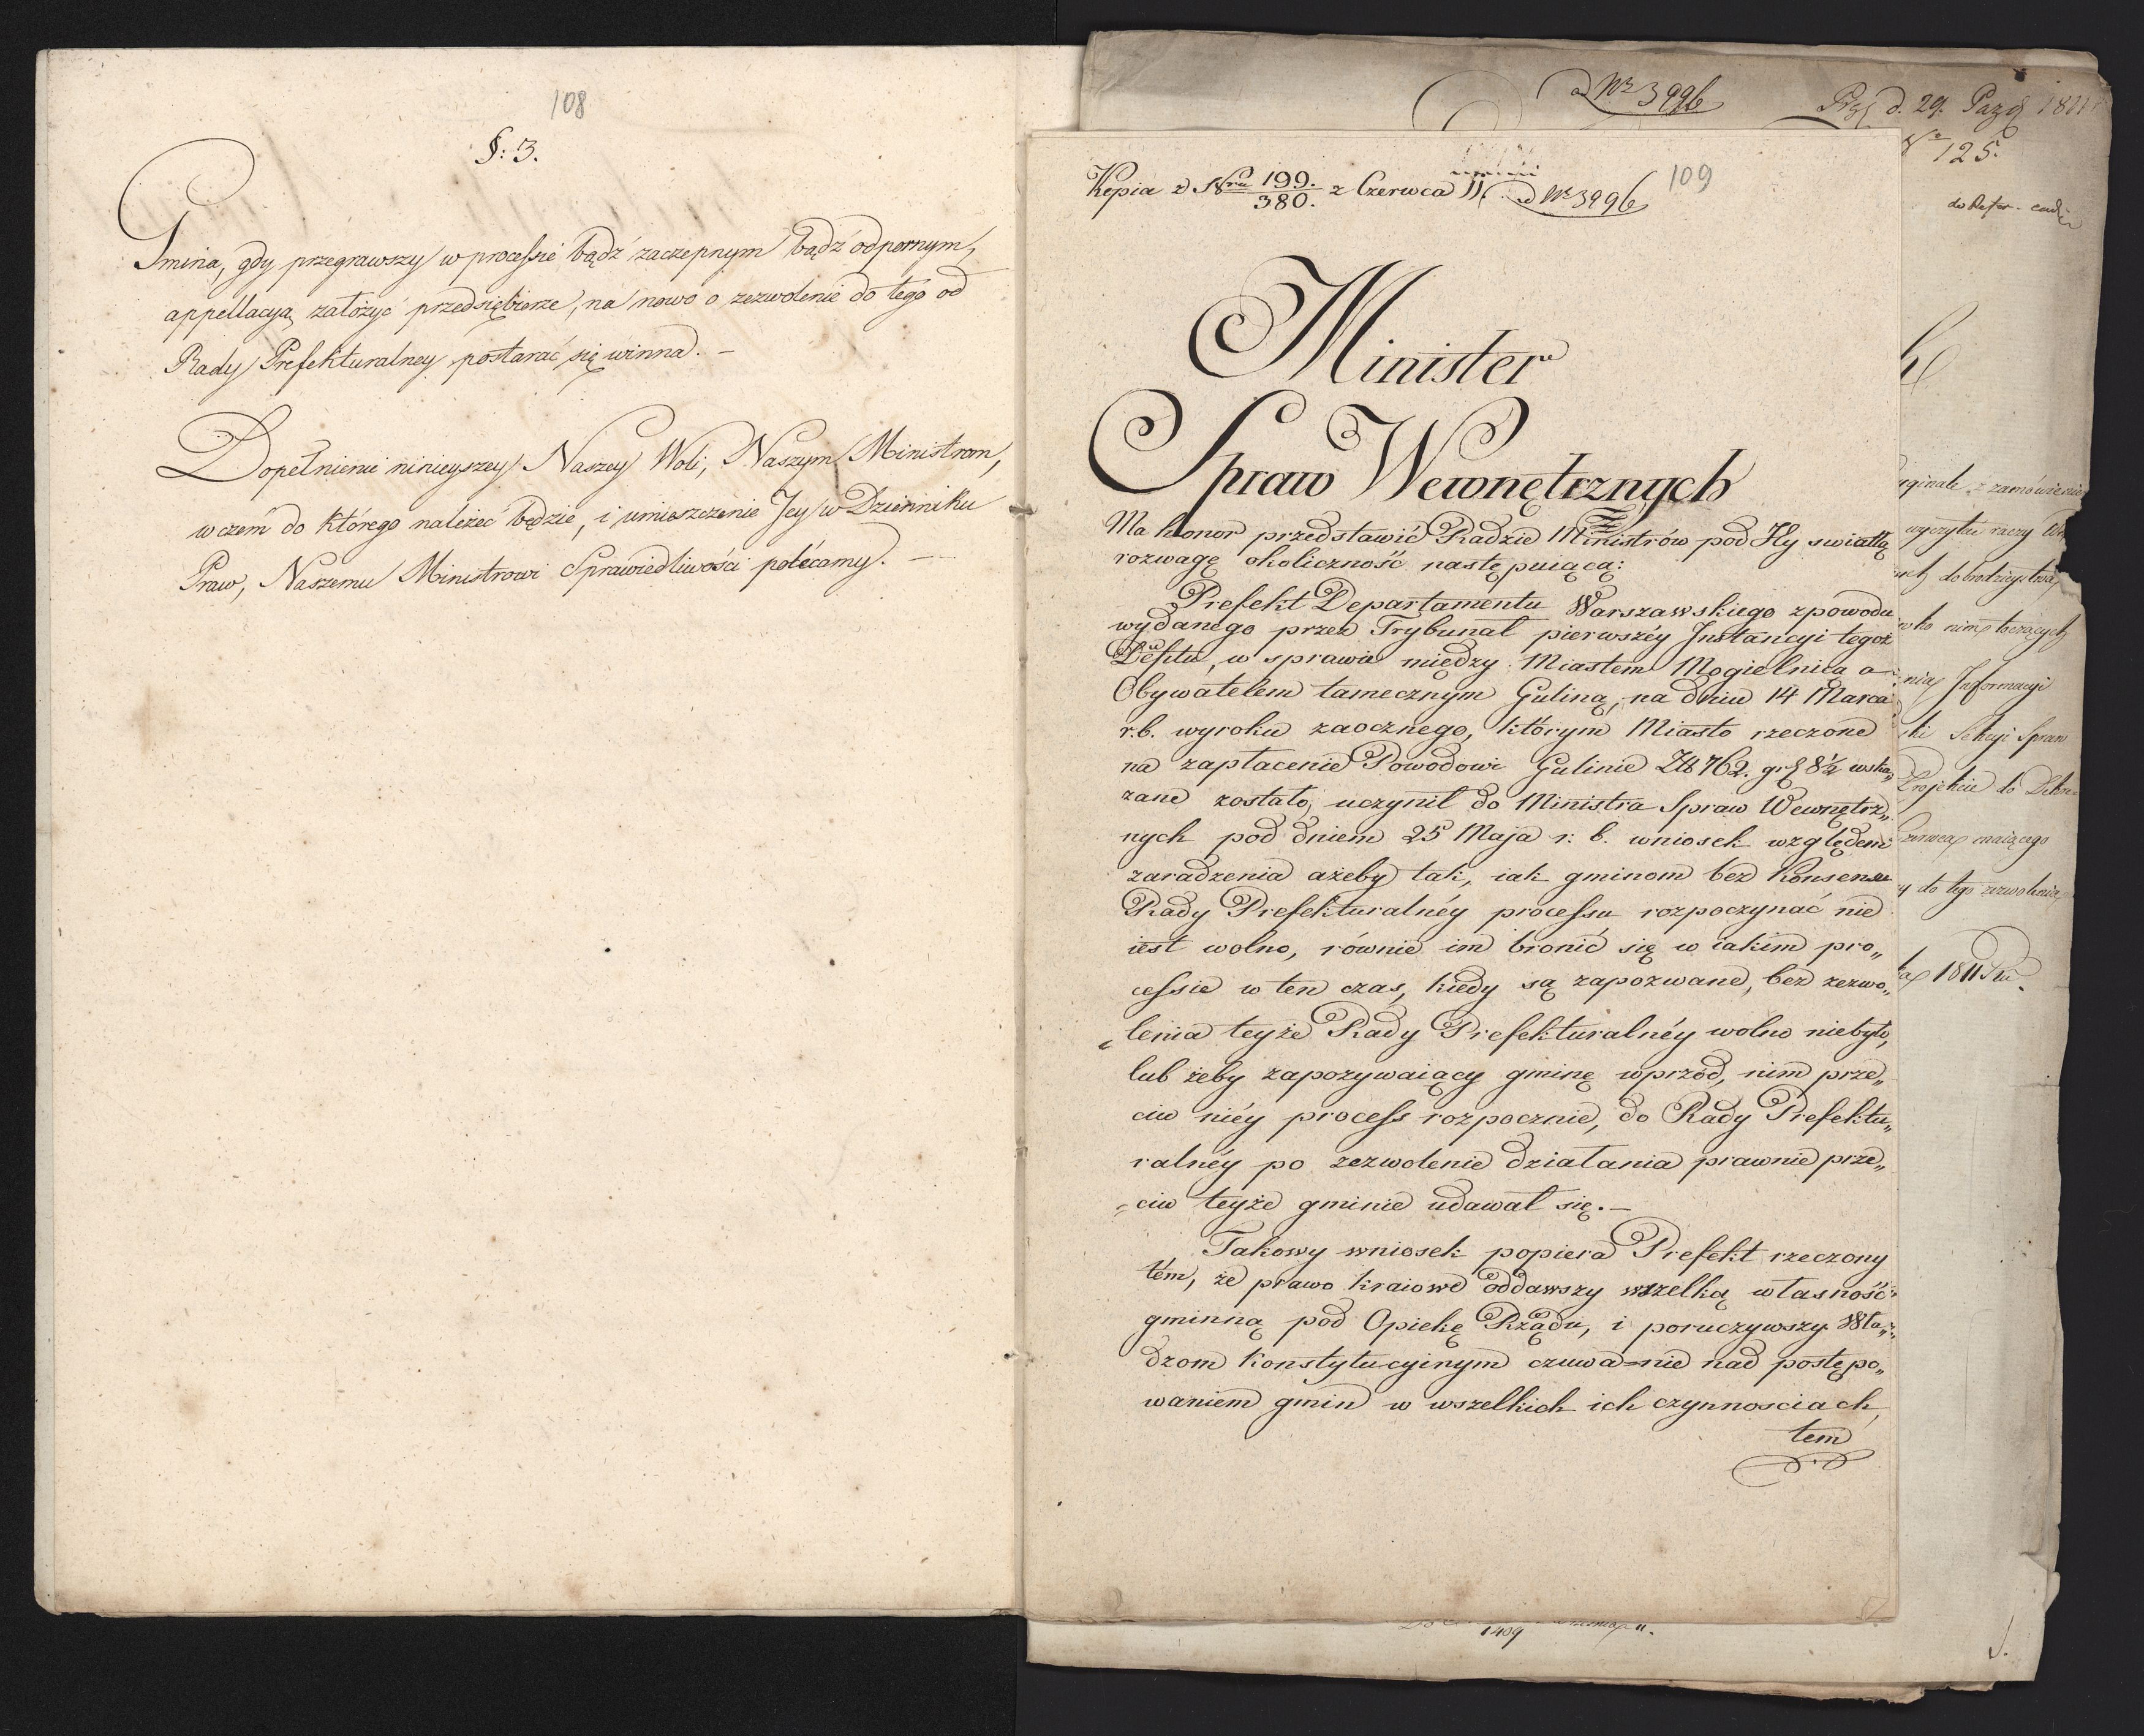 108
§: 3.
Gmina, gdy przegrawszy w processie bądź zaczepnym bądź odpornym,
appéllacyą założyć przedsiębierze, na nowo o zezwolenie do tego od
Rady Prefekturalney postarać się winna. –
Dopełnienie ninieyszey Naszey Woli, Naszym Ministrom,
w czém do którego należeć będzie, i umieszczenie Jey w Dzienniku
Praw, Naszemu Ministrowi Sprawiedliwości polécamy. –
ad Nr 3996
d. 29. Paźd 1811
No 125.
Kopia z Nru 199./380. z Czerwca 11. ad Nr 3996
109
Minister
Spraw Wewnętrznych
Ma honor przedstawić Radzie Ministrów pod Jey swiatłą
rozwagę okoliczność następuiącą:
Prefekt Departamentu Warszawskiego z powodu
wydanego przez Trybunał pierwszéy Instancyi tegoż
Deptu, w sprawie między Miastem Mogielnicą a
Obywatelem tamecznym Guliną, na dniu 14 Marca
r. b. wyroku zaocznego, którym Miasto rzeczone
na zapłacenie Powodowi Gulinie Zł 762. gr 8½ wska„
zane zostało, uczynił do Ministra Spraw Wewnętrz„
nych pod dniem 25 Maja r: b. wniosek względem
zaradzenia ażeby tak, iak gminom bez Konsensu
Rady Prefekturalnéy processu rozpoczynać nie
iest wolno, równie im bronić się w iakim pro„
cessie w ten czas, kiedy są zapozwane, bez zezwo„
lenia teyże Rady Prefekturalnéy wolno niebyło,
lub żeby zapozywaiący gminę wprzód, nim prze„
ciw niéy process rozpocznie, do Rady Prefektu„
ralnéy po zezwolenie działania prawnie prze„
ciw teyże gminie udawał się. –
Takowy wniosek popiera Prefekt rzeczony
tém, że prawo kraiowe oddawszy wszelką własność
gminną pod Opiekę Rządu, i poruczywszy Wła„
dzom Konstytucyinym czuwanie nad postępo„
waniem gmin w wszelkich ich czynnosciach,
tem
z zamówienie
wyczytu raczy
dobrodzieystwa
toczących
Informacyi
Sekcyi Spraw
Projekcie do
maiącego
do tego zezwolenia
1811 Ru.
1409